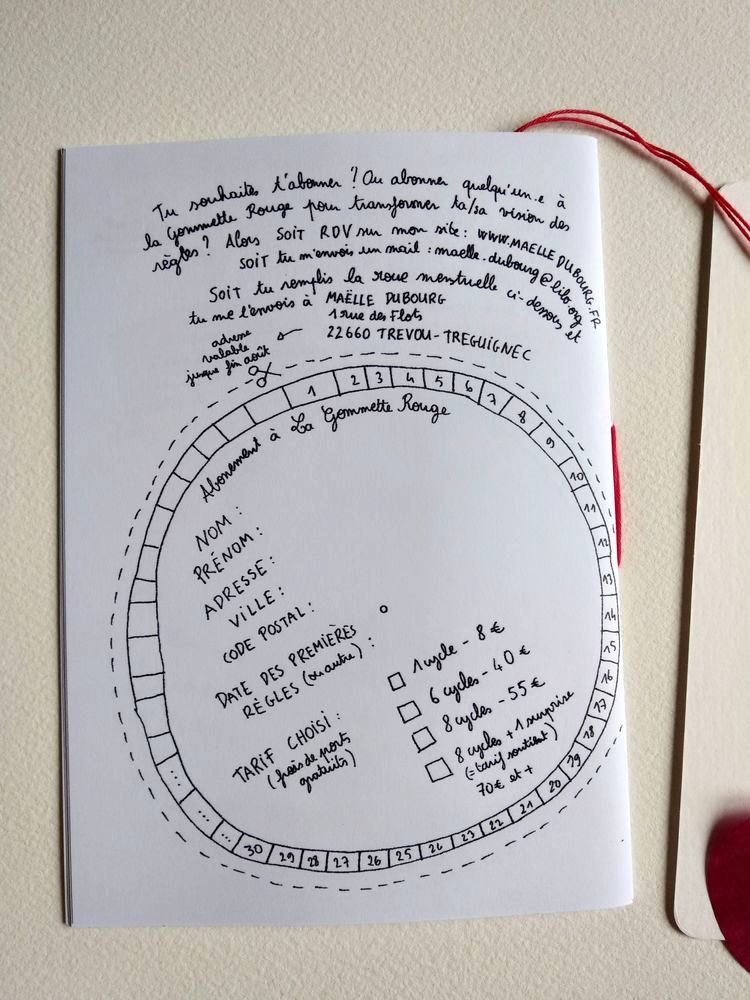 Tu souhaites t'abonner ? Ou abonner quelqu'un.e à
la Gommette Rouge pour transformer ta/sa vision des
règles ? Alors SOIT RDV sur mon site : WWW.MAELLEDUBOURG.FR
SOIT tu m'envois un mail : maelle.dubourg@lilo.org
SOIT tu remplis la roue menstruelle ci-dessous et
tu me l'envois à MAËLLE DUBOURG
1 rue des Flots
22660 TREVOU-TREGUIGNEC
adresse
valable
jusque fin août
1 2 3 4 5 6 7 8 9 10 11 12 13 14 15 16 17 18 19 20 21 22 23 24 25 26 27 28 29 30 ... ... ...
Abonement à La Gommette Rouge
NOM :
PRÉNOM :
ADRESSE :
VILLE :
CODE POSTAL :
DATE DES PREMIÈRES
RÈGLES (ou autre) :
TARIF CHOISI :
(frais de ports
gratuits)
1 cycle - 8 €
6 cycles - 40 €
8 cycles - 55 €
8 cycles + 1 surprise
(= tarif soutient)
70 € et +